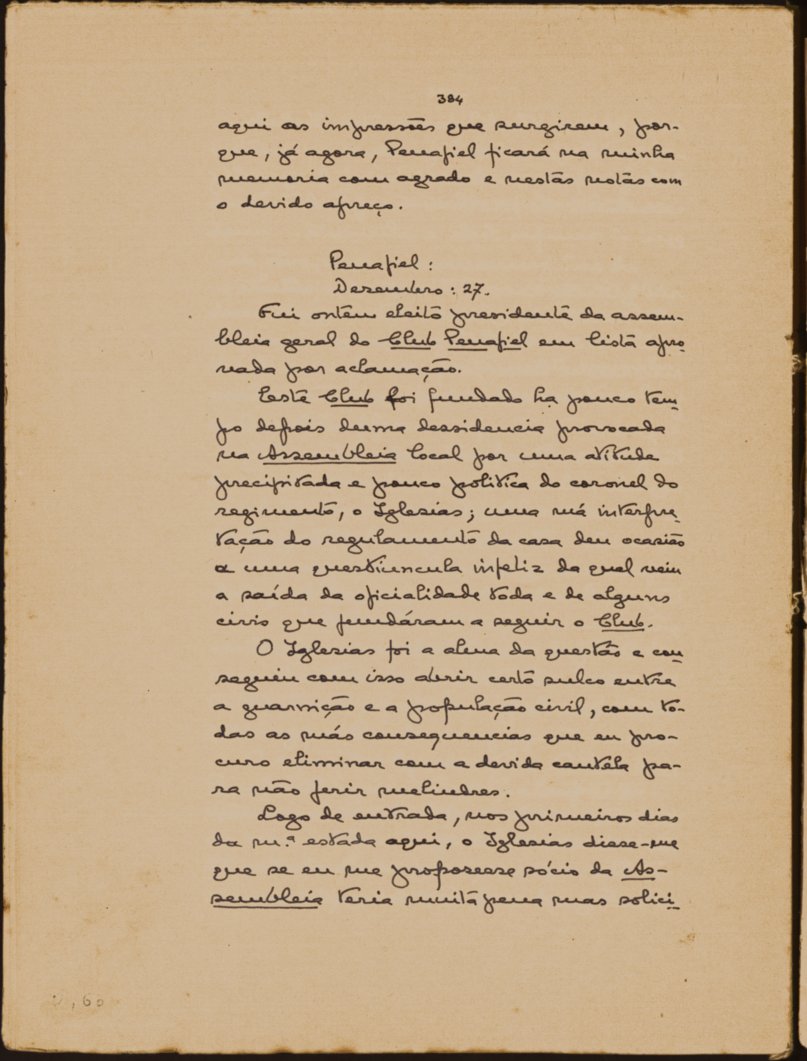 384
aqui as impressões que surgirem, por-
que, já agora, Penafiel ficará na minha
memoria com agrado e nestas notas com
o devido apreço.
Penafiel:
Dezembro: 27.
Fui ontem eleito presidente da assem-
bleia geral do Club Penafiel em lista apro-
vada por aclamação.
Este Club foi fundado ha pouco tem-
po depois duma dessidencia provocada
na Assembleia local por uma atitude
precipitada e pouco politica do coronel do
regimento, o Iglesias; uma má interpre-
tação do regulamento da casa deu ocasião
a uma questiuncula infeliz da qual veiu
a saída da oficialidade toda e de alguns
civis que fundáram a seguir o Club.
O Iglesias foi a alma da questão e con-
seguiu com isso abrir certo sulco entre
a guarnição e a população civil, com to-
das as más consequencias que eu pro-
curo eliminar com a devida cautela pa-
ra não ferir melindres.
Logo de entrada, nos primeiros dias
da m.ª estada aqui, o Iglesias disse-me
que se eu me propozesse sócio da As-
sembleia teria muita pena mas solici-